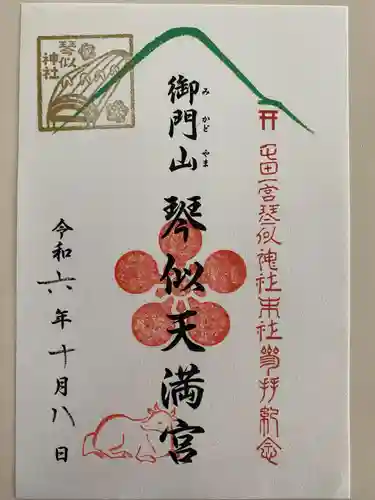 屯田一宮琴似神社末社参拝紀念
御門山 琴似天満宮
みかどやま
令和六年十月八日
琴似
神社